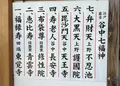 谷中七福神
七、弁財天 上野 不忍池
六、大黒天 上野 護國院
五、毘沙門天 谷中 天王寺
四、寿老人 谷中 長安寺
三、布袋尊 修性院
二、恵比寿 青雲寺
一、福禄寿 田端 東覚寺